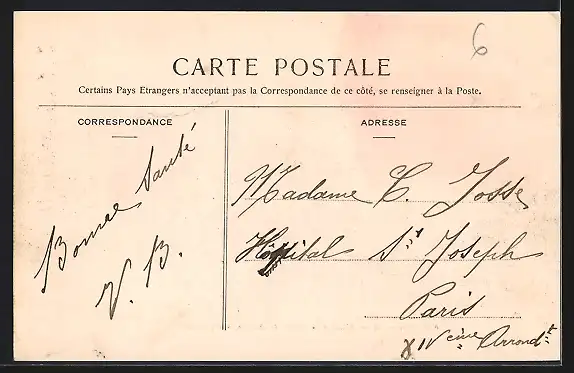 6
CARTE POSTALE
Certains Pays Etrangers n'acceptant pas la Correspondance de ce côté, se renseigner à la Poste.
CORRESPONDANCE
Bonne Santé
V. B.
ADRESSE
Madame C. Josse
Hôpital St Joseph
Paris
XIVème Arrondt